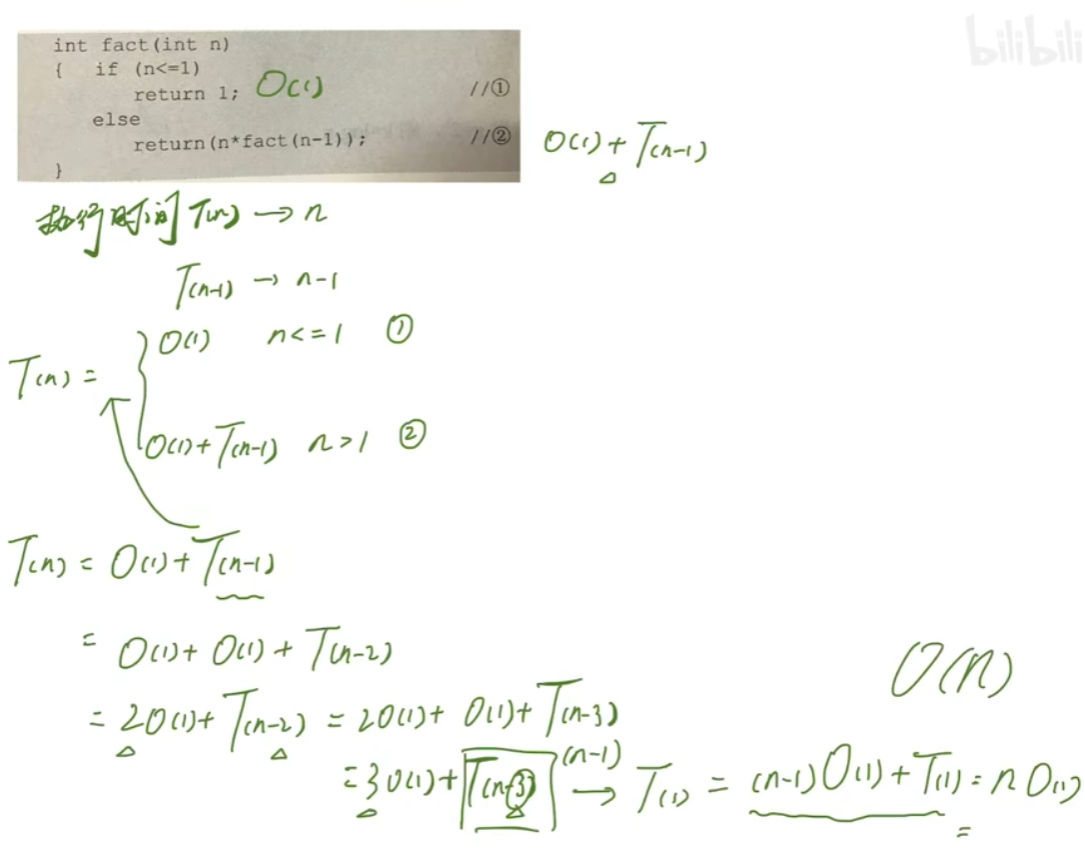 bilibili
int fact(int n)
{ if (n<=1)
return 1; O(1) //①
else
return(n*fact(n-1)); //② O(1)+T(n-1)
}
执行时间T(n) → n
T(n-1) → n-1
O(1) n<=1 ①
T(n) =
O(1)+T(n-1) n>1 ②
T(n) = O(1)+T(n-1)
= O(1)+O(1)+T(n-2) O(n)
= 2O(1)+T(n-2) = 2O(1)+O(1)+T(n-3)
=3O(1)+T(n-3) (n-1) → T(1) = (n-1)O(1)+T(1)=nO(1)
=